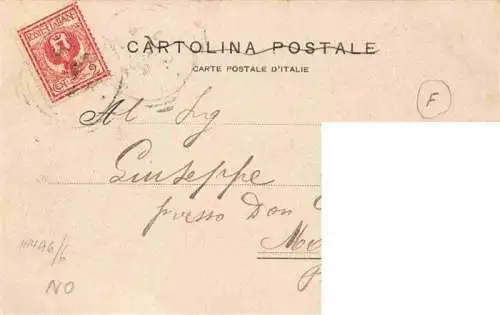 POSTE ITALIANE
CENT. 2
CARTOLINA POSTALE
CARTE POSTALE D'ITALIE
F
Al Sig
Giuseppe
presso Don
Me
NO